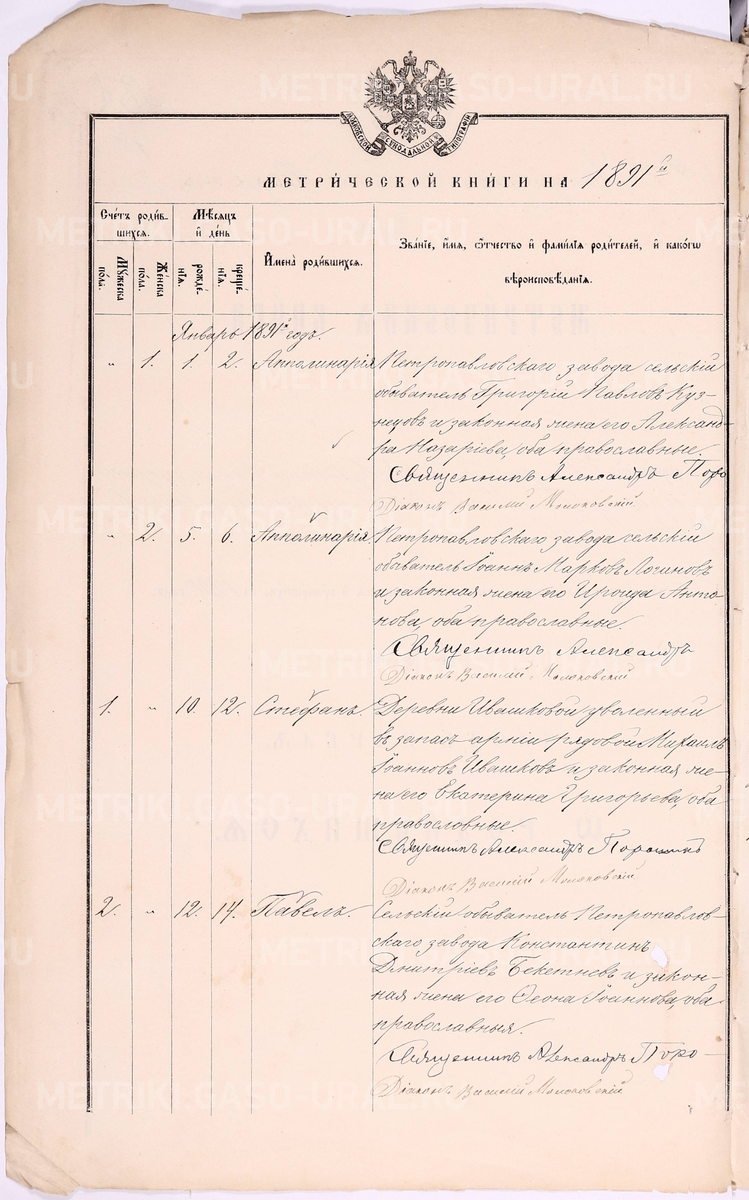 МОСКОВСКОЙ СѴНОДАЛЬНОЙ ТИПОГРАФІИ
МЕТРИ́ЧЕСКОЙ КНИ́ГИ НА 1891 й
Сче́тъ роди́в-
шихся.
Мѣ́сяцъ
и҆ де́нь
Му́жеска
по́ла.
Же́нска
по́ла.
рожде́-
нїя.
креще́-
нїя.
И҆мена̀ роди́вшихся.
Зва́нїе, и҆́мя, ѻ҆́тчество и҆ фами́лїя роди́телей, и҆ како́гѡ
вѣроисповѣ́данїя.
Январь 1891 годъ.
" 1. 1. 2. Апполинарія Петропавловскаго завода сельскій
обыватель Григорій Павловъ Куз-
нецовъ и законная жена его Александ-
ра Назаріева, оба православные.
Священникъ Александръ Поро
Діаконъ Василій Молоковскій
" 2. 5. 6. Апполинарія. Петропавловскаго завода сельскій
обыватель Іоаннъ Марковъ Логиновъ
и законная жена его Ироида Анто-
нова, оба православные.
Священникъ Александръ
Діаконъ Василій Молоковскій
1. " 10. 12. Стефанъ. Деревни Ивашковой уволенный
въ запасъ арміи рядовой Михаилъ
Іоанновъ Ивашковъ и законная же-
на его Екатерина Григорьева, оба
православные.
Священникъ Александръ Порошинъ
Діаконъ Василій Молоковскій
2. " 12. 14. Павелъ. Сельскій обыватель Петропавлов-
скаго завода Константинъ
Дмитріевъ и закон-
ная жена его Іоаннова, оба
православныя.
Священникъ Александръ Поро-
Діаконъ Василій Молоковскій
METRIKI.GASO-URAL.RU